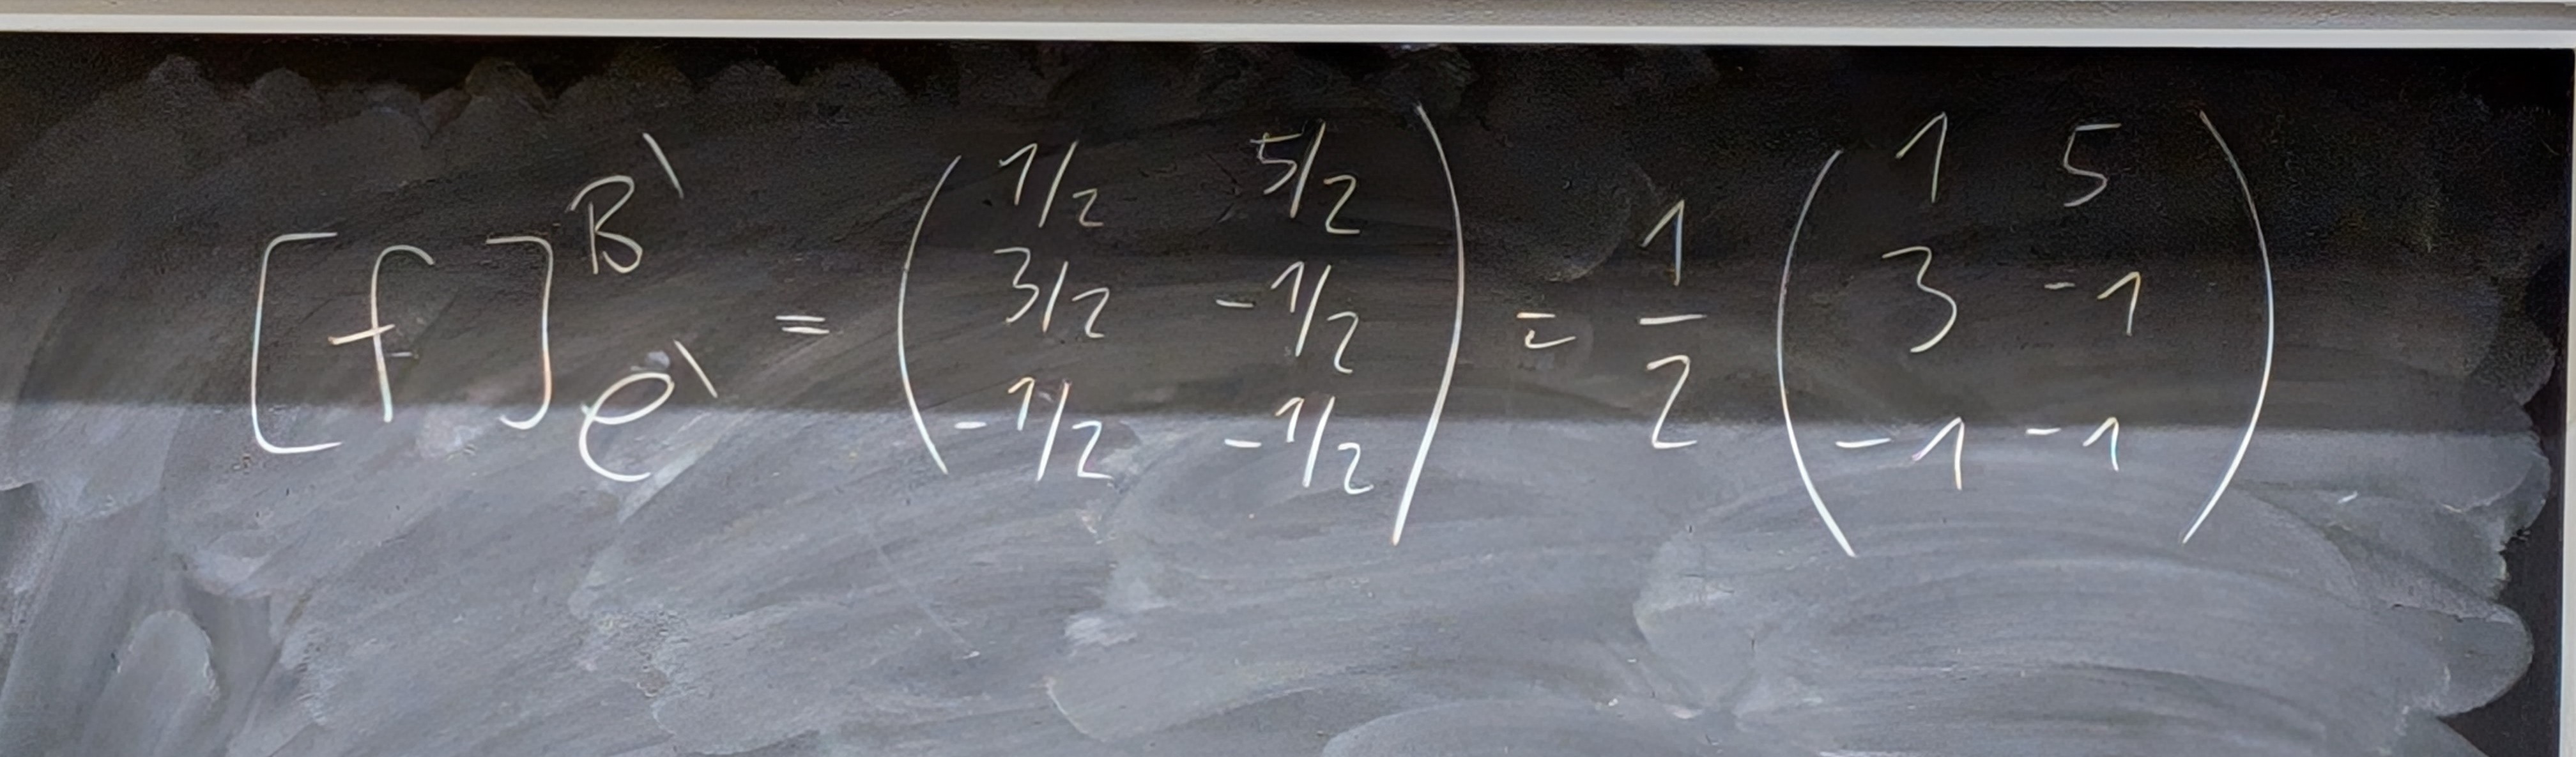 [f]^{B'}_{e'} = \begin{pmatrix} 1/2 & 5/2 \\ 3/2 & -1/2 \\ -1/2 & -1/2 \end{pmatrix} = \frac{1}{2} \begin{pmatrix} 1 & 5 \\ 3 & -1 \\ -1 & -1 \end{pmatrix}